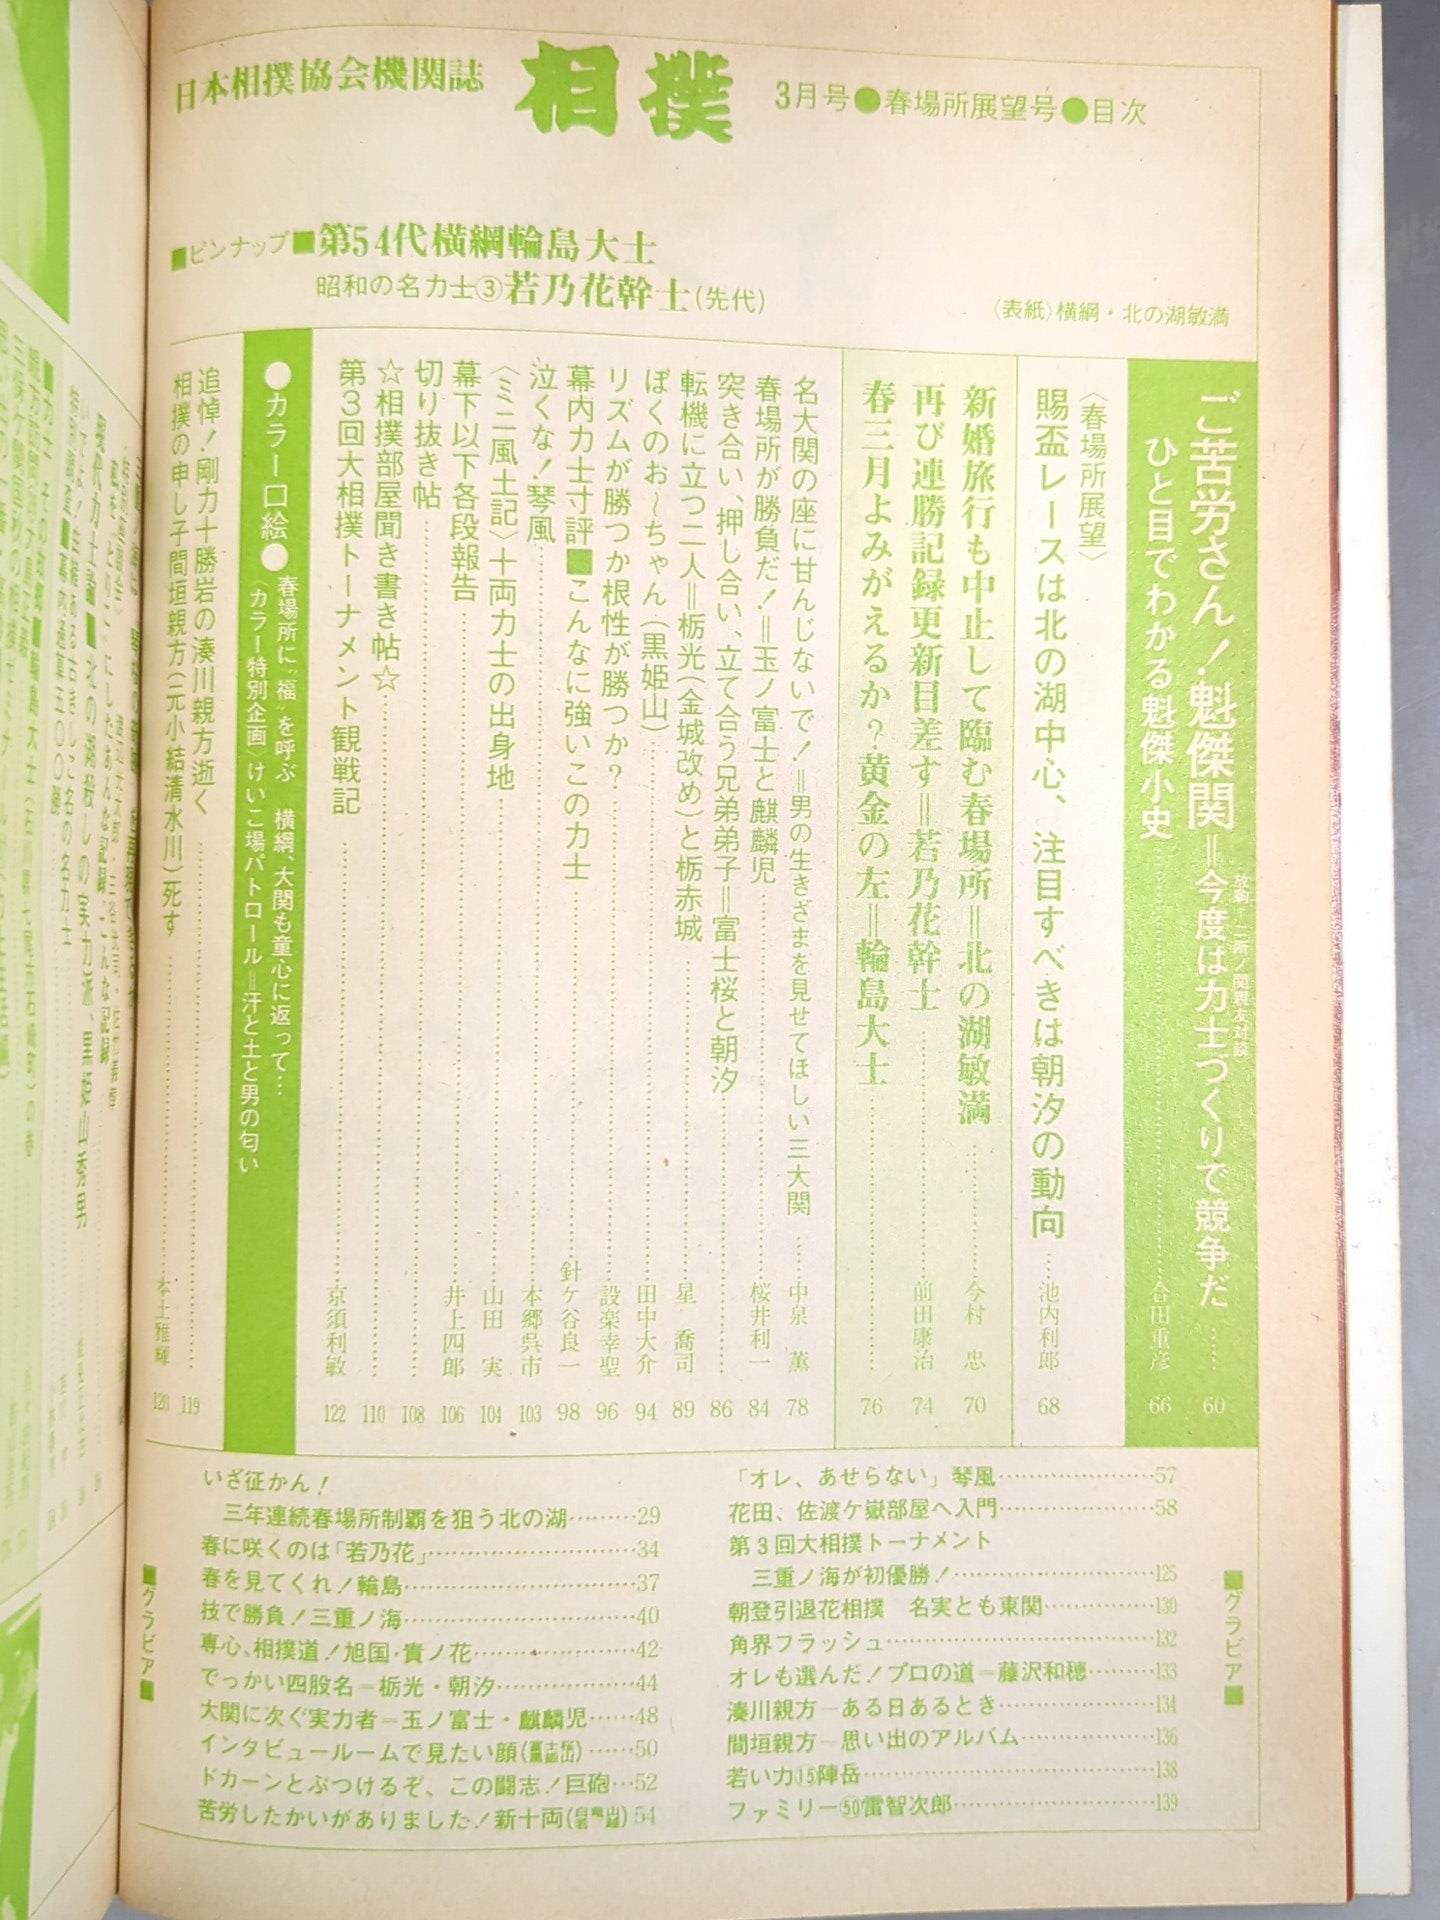 日本相撲協会機関誌 相撲 3月号●春場所展望号●目次
■ピンナップ■第54代横綱輪島大士
昭和の名力士③若乃花幹士(先代)
〈表紙〉横綱・北の湖敏満
ご苦労さん!魁傑関=今度は力士づくりで競争だ……60
ひと目でわかる魁傑小史……合田重彦 66
〈春場所展望〉
賜盃レースは北の湖中心、注目すべきは朝汐の動向…池内利郎 68
新婚旅行も中止して臨む春場所=北の湖敏満……今村 忠 70
再び連勝記録更新目差す=若乃花幹士……前田康治 74
春三月よみがえるか?黄金の左=輪島大士……76
名大関の座に甘んじないで!=男の生きざまを見せてほしい三大関……中泉 薫 78
春場所が勝負だ!=玉ノ富士と麒麟児……桜井利一 84
突き合い、押し合い、立て合う兄弟弟子=富士桜と朝汐……86
転機に立つ二人=栃光(金城改め)と栃赤城……星 喬司 89
ぼくのお〜ちゃん(黒姫山)……田中大介 94
リズムが勝つか根性が勝つか?……設楽幸聖 96
幕内力士寸評■こんなに強いこの力士……針ケ谷良一 98
泣くな!琴風……本郷呉市 103
〈ミニ風土記〉十両力士の出身地……山田 実 104
幕下以下各段報告……井上四郎 106
切り抜き帖……108
☆相撲部屋聞き書き帖☆……110
第3回大相撲トーナメント観戦記……京須利敏 122
●カラー口絵●
春場所に“福”を呼ぶ 横綱、大関も童心に返って…
〈カラー特別企画〉けいこ場パトロール=汗と土と男の匂い
追悼!剛力十勝岩の湊川親方逝く……119
相撲の申し子間垣親方(元小結清水川)死す……本土雅輝 120
■グラビア■
「オレ、あせらない」琴風……57
花田、佐渡ケ嶽部屋へ入門……58
第3回大相撲トーナメント
三重ノ海が初優勝!……125
朝登引退花相撲 名実とも東関……130
角界フラッシュ……132
オレも選んだ!プロの道=藤沢和穂……133
湊川親方―ある日あるとき……134
間垣親方―思い出のアルバム……136
若い力⑮陣岳……138
ファミリー㊿雷智次郎……139
いざ征かん!
三年連続春場所制覇を狙う北の湖……29
春に咲くのは「若乃花」……34
春を見てくれ!輪島……37
技で勝負!三重ノ海……40
専心、相撲道!旭国・貴ノ花……42
でっかい四股名=栃光・朝汐……44
大関に次ぐ実力者=玉ノ富士・麒麟児……48
インタビュールームで見たい顔……50
ドカーンとぶつけるぞ、この闘志!巨砲…52
苦労したかいがありました!新十両 54
■グラビア■